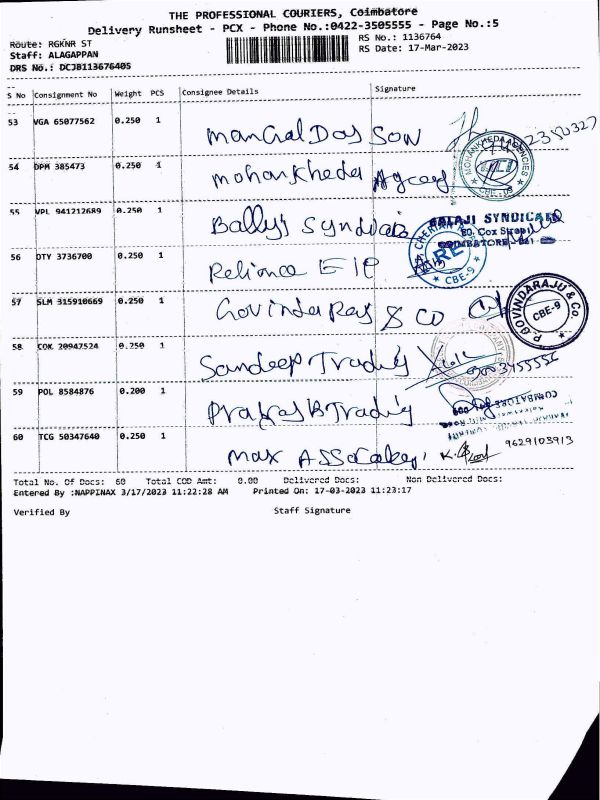 THE PROFESSIONAL COURIERS, Coimbatore
Delivery Runsheet - PCX - Phone No.:0422-3505555 - Page No.:5
Route: RGKNR ST
RS No.: 1136764
Staff: ALAGAPPAN
RS Date: 17-Mar-2023
DRS No.: DCJB113676405
S No Consignment No Weight PCS Consignee Details Signature
53 VGA 65077562 0.250 1 Mangal Das Son
54 DPM 385473 0.250 1 Mohankheda Agcey
MOHANKHEDA AGENCIES
55 VPL 941212689 0.250 1 Ballyis Syndicate
BALAJI SYNDICATE
80, Cox Street
COIMBATORE - 641
56 OTY 3736700 0.250 1 Reliance EIP
RE
CBE-9
57 SLM 315910669 0.250 1 Govinda Raj & CO
P. GOVINDARAJU & Co.
CBE-9
58 COK 20947524 0.250 1 Sandeep Trading
59 POL 8584876 0.200 1 Prakash Trading
COIMBATORE
60 TCG 50347640 0.250 1 Max Associates
9629103913
Total No. Of Docs: 60 Total COD Amt: 0.00 Delivered Docs: Non Delivered Docs:
Entered By :NAPPINAX 3/17/2023 11:22:28 AM Printed On: 17-03-2023 11:23:17
Verified By Staff Signature